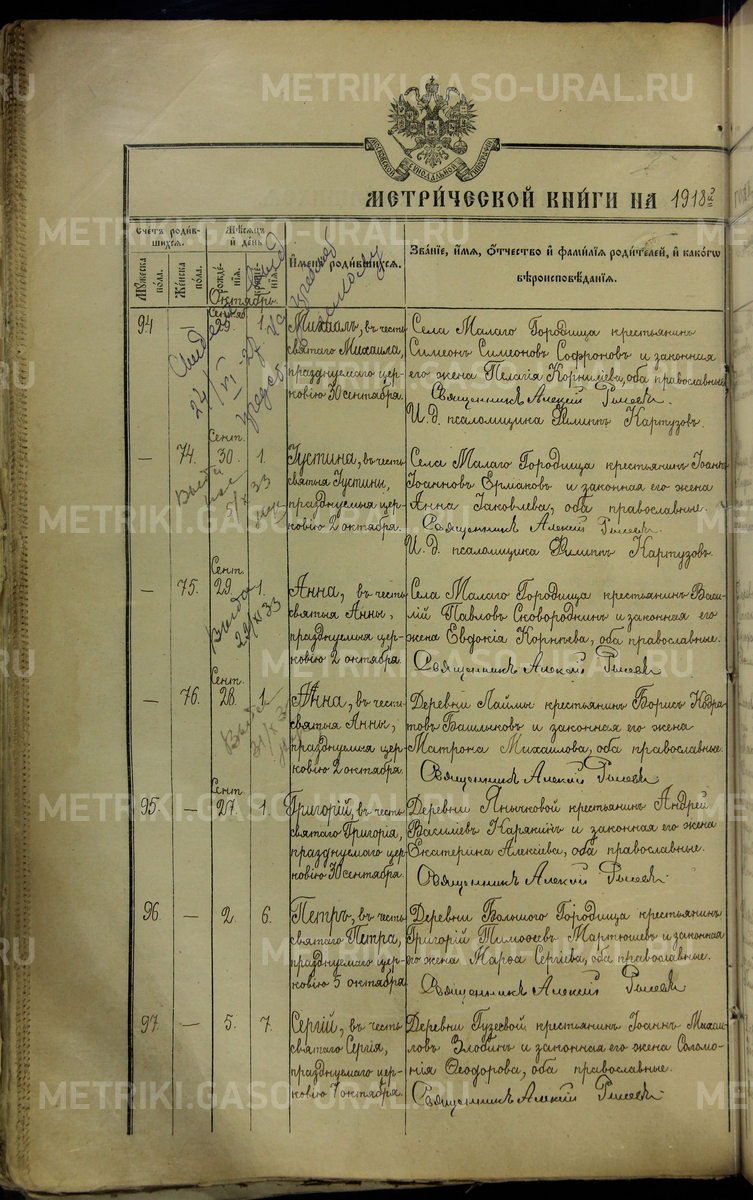 METRIKI.GASO-URAL.RU
МОСКОВСКОЙ СУНОДАЛЬНОЙ ТИПОГРАФІИ
МЕТРИ́ЧЕСКОЙ КНИ́ГИ НА 1918
Счетъ роди́вшихся.
Мѣсяцъ и день
И́мена роди́вшихся.
Зва́ніе, и́мя, о́тчество и фами́лія роди́телей, и како́гѡ вѣроисповѣ́данія.
Мꙋжеска пола.
Же́нска по́ла.
рожде́нія.
креще́нія.
Октябрь.
94 — Сентяб. 29. 1.
Михаилъ, въ честь
святаго Михаила,
празднуемаго цер-
ковію 30 сентября.
Села Малаго Городища крестьянинъ
Симеонъ Симеоновъ Софроновъ и законная
его жена Пелагія Корниліева, оба православные
Священникъ Алексій
И. д. псаломщика Филиппъ Картузовъ.
— 74. Сент. 30. 1.
Іустина, въ честь
святыя Іустины,
празднуемыя цер-
ковію 2 октября.
Села Малаго Городища крестьянинъ Іоаннъ
Іоанновъ Ермаковъ и законная его жена
Анна Іаковлева, оба православные.
Священникъ Алексій
И. д. псаломщика Филиппъ Картузовъ.
— 75. Сент. 29. 1.
Анна, въ честь
святыя Анны,
празднуемыя цер-
ковію 2 октября.
Села Малаго Городища крестьянинъ Васи-
лій Павловъ Сковороднинъ и законная его
жена Евдокія Корніева, оба православные.
Священникъ Алексій
— 76. Сент. 28. 1.
Анна, въ честь
святыя Анны,
празднуемыя цер-
ковію 2 октября.
Деревни Лаймы крестьянинъ Борисъ Кодра-
товъ Башлыковъ и законная его жена
Матрона Михаилова, оба православные.
Священникъ Алексій
95. — Сент 27. 1.
Григорій, въ честь
святаго Григорія,
празднуемаго цер-
ковію 30 сентября.
Деревни Янычковой крестьянинъ Андрей
Василіевъ Карякинъ и законная его жена
Екатерина Алексіева, оба православные.
Священникъ Алексій
96. — 2. 6.
Петръ, въ честь
святаго Петра,
празднуемаго цер-
ковію 5 октября
Деревни Большого Городища крестьянинъ
Григорій Тимофеевъ Мартюшевъ и законная
его жена Марѳа Сергіева, оба православные.
Священникъ Алексій
97. — 5. 7.
Сергій, въ честь
святаго Сергія,
празднуемаго цер-
ковію 7 октября.
Деревни Гузеевой крестьянинъ Іоаннъ Михаи-
ловъ Злобинъ и законная его жена Соломо-
нія Ѳеодорова, оба православные.
Священникъ Алексій